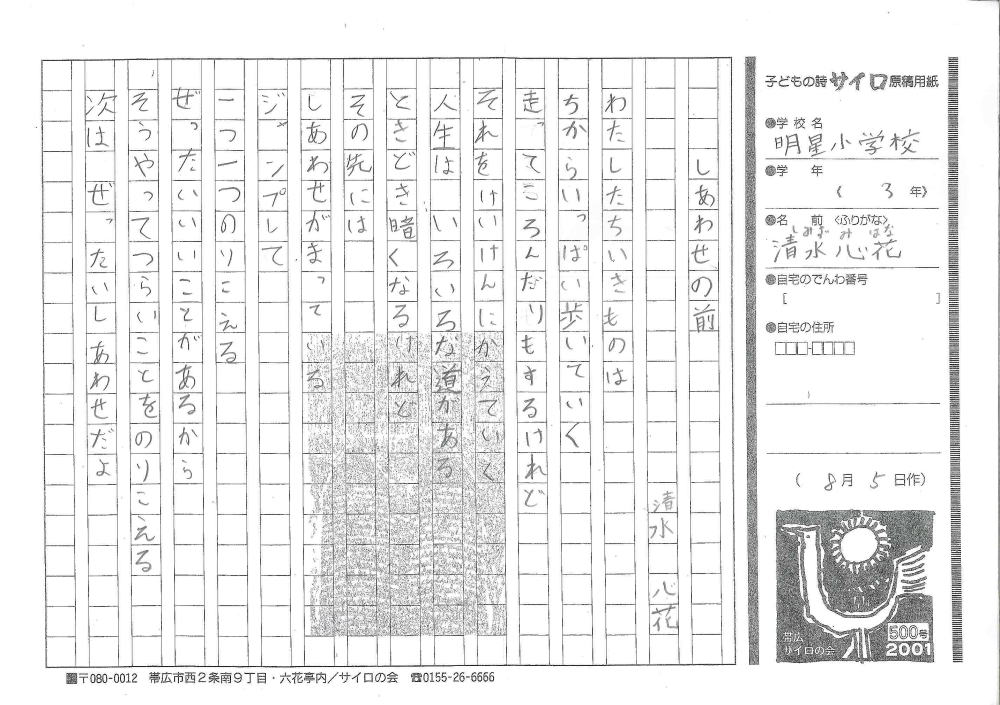 しあわせの前
清水　心花
わたしたちいきものは
ちからいっぱい歩いていく
走ってころんだりもするけれど
それをけいけんにかえていく
人生は　いろいろな道がある
ときどき暗くなるけれど
その先には
しあわせがまっている
ジャンプして
一つ一つのりこえる
ぜったいいいことがあるから
そうやってつらいことをのりこえる
次は　ぜったいしあわせだよ
子どもの詩 サイロ 原稿用紙
●学校名
明星小学校
●学　年
（　3　年）
●名　前〈ふりがな〉
しみず　み　はな
清水　心花
●自宅のでんわ番号
［　　　］
●自宅の住所
□□□-□□□□
（　8月　5日作）
帯広
サイロの会
500号
2001
〒080-0012　帯広市西2条南9丁目・六花亭内／サイロの会　☎0155-26-6666